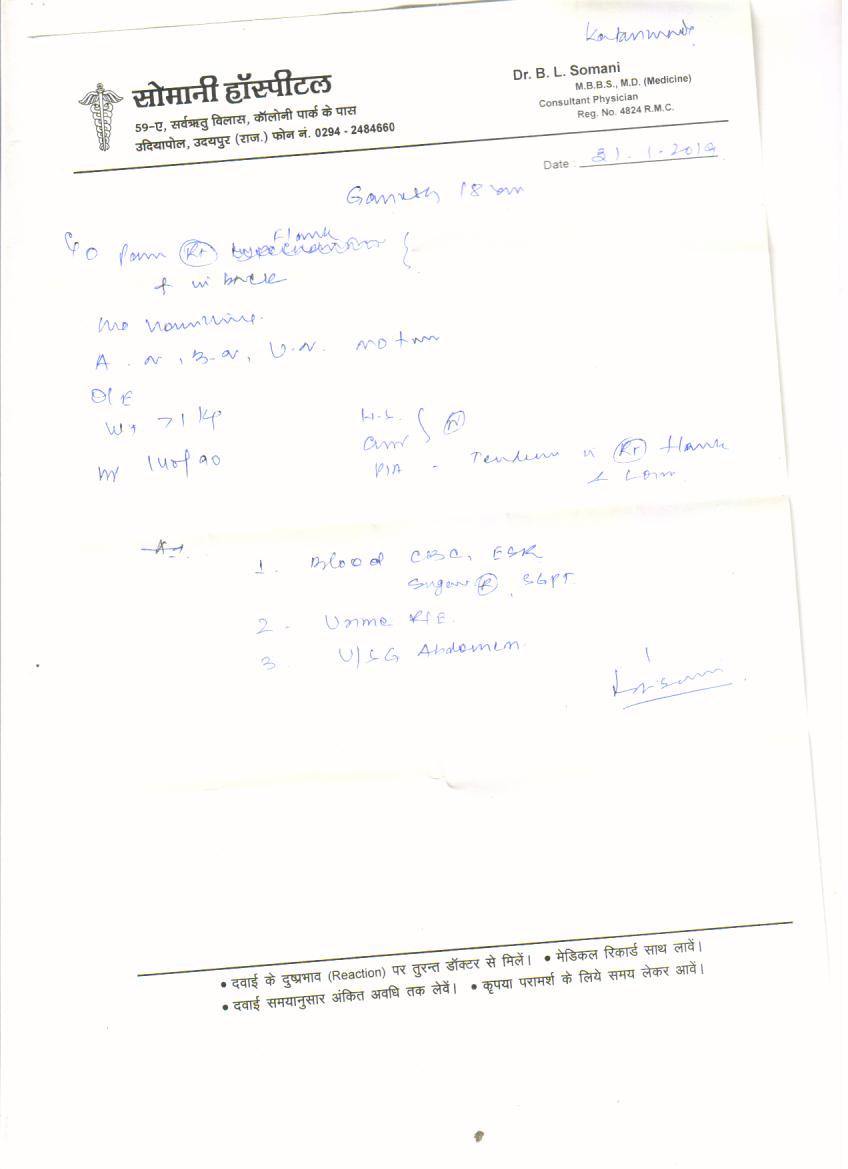 सोमानी हॉस्पीटल
59-ए, सर्वऋतु विलास, कॉलोनी पार्क के पास
उदियापोल, उदयपुर (राज.) फोन नं. 0294 - 2484660
Dr. B. L. Somani
M.B.B.S., M.D. (Medicine)
Consultant Physician
Reg. No. 4824 R.M.C.
Date : 31.1.2019
Ganesh 18
C/O Pain Rt Flank
+ in back
No
A.N, B.N, U.N.
O/E
Wt 71 kg
140/90
H.S.
P/A - in Rt Flank
1. Blood CBC, ESR
Sugar R, SGPT
2. Urine R/E.
3. U/SG Abdomen.
• दवाई के दुष्प्रभाव (Reaction) पर तुरन्त डॉक्टर से मिलें। • मेडिकल रिकार्ड साथ लावें।
• दवाई समयानुसार अंकित अवधि तक लेवें। • कृपया परामर्श के लिये समय लेकर आवें।